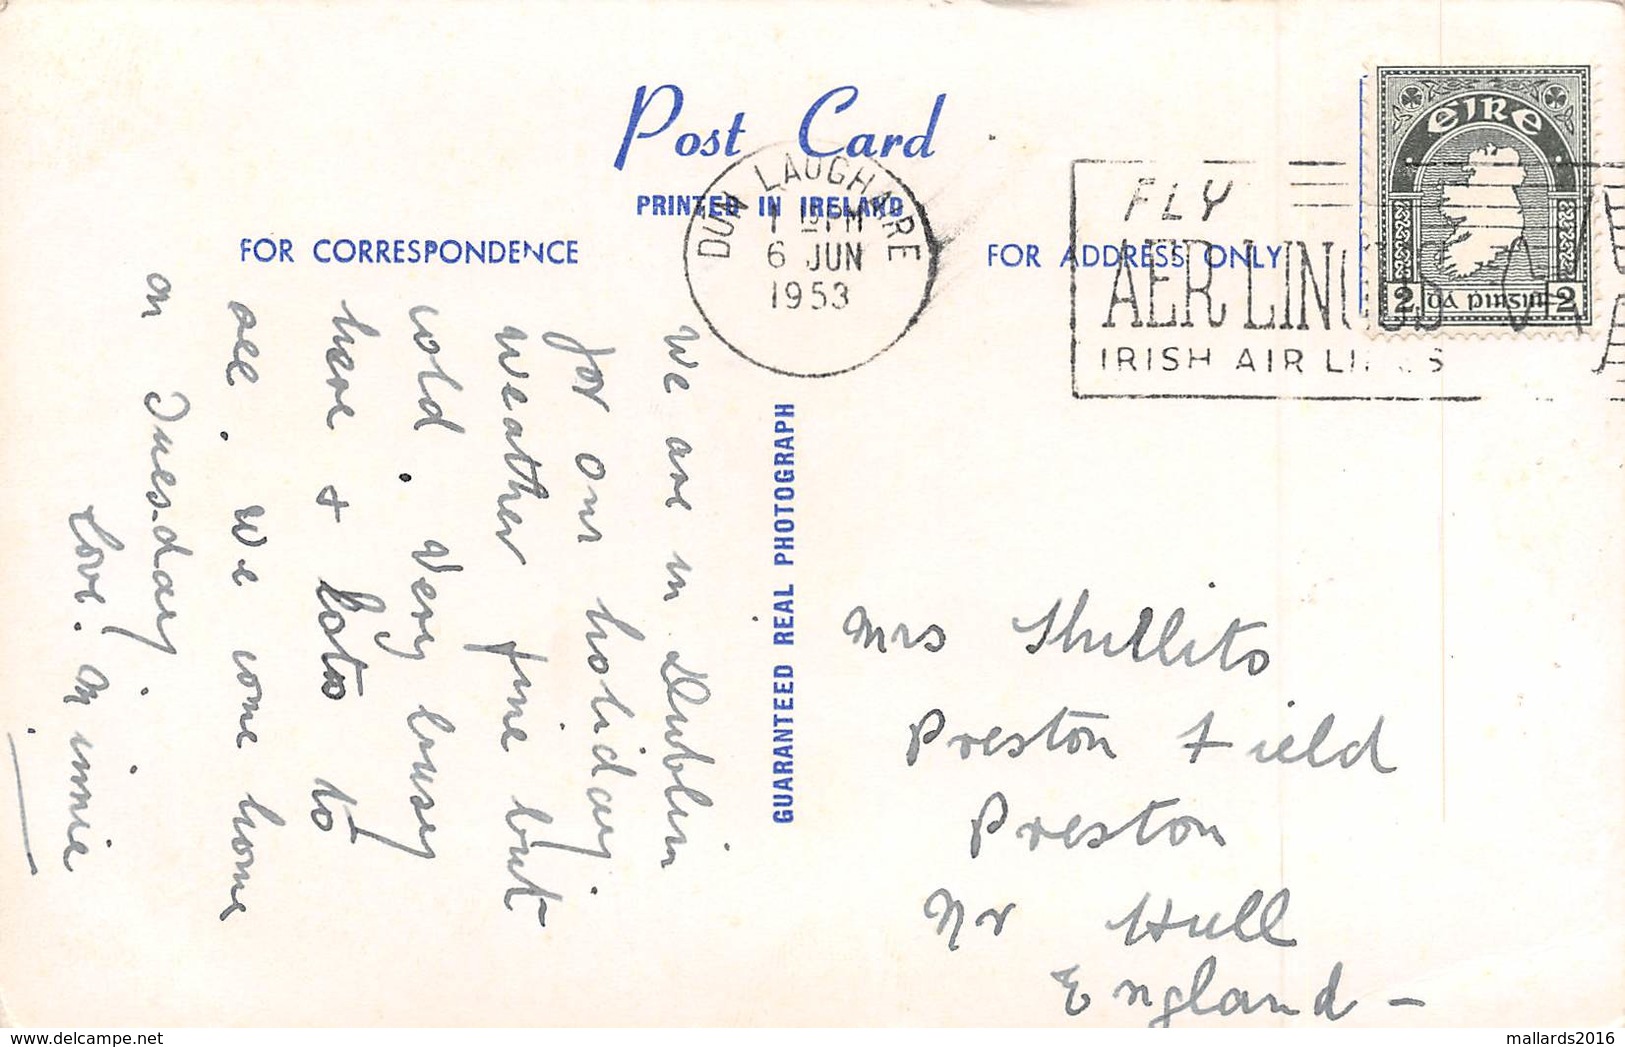 Post Card
PRINTED IN IRELAND
FOR CORRESPONDENCE
FOR ADDRESS ONLY
GUARANTEED REAL PHOTOGRAPH
DUN LAOGHAIRE
6 JUN
1953
FLY
AER LINGUS
IRISH AIR LINES
EIRE
2 dá pingin 2
We are in Dublin
for our holiday.
Weather fine but
cold. Very busy
here & lots to
see. We come home
on Tuesday.
Love. Minnie
Mrs Shillito
Preston Field
Preston
Nr Hull
England -
mallards2016